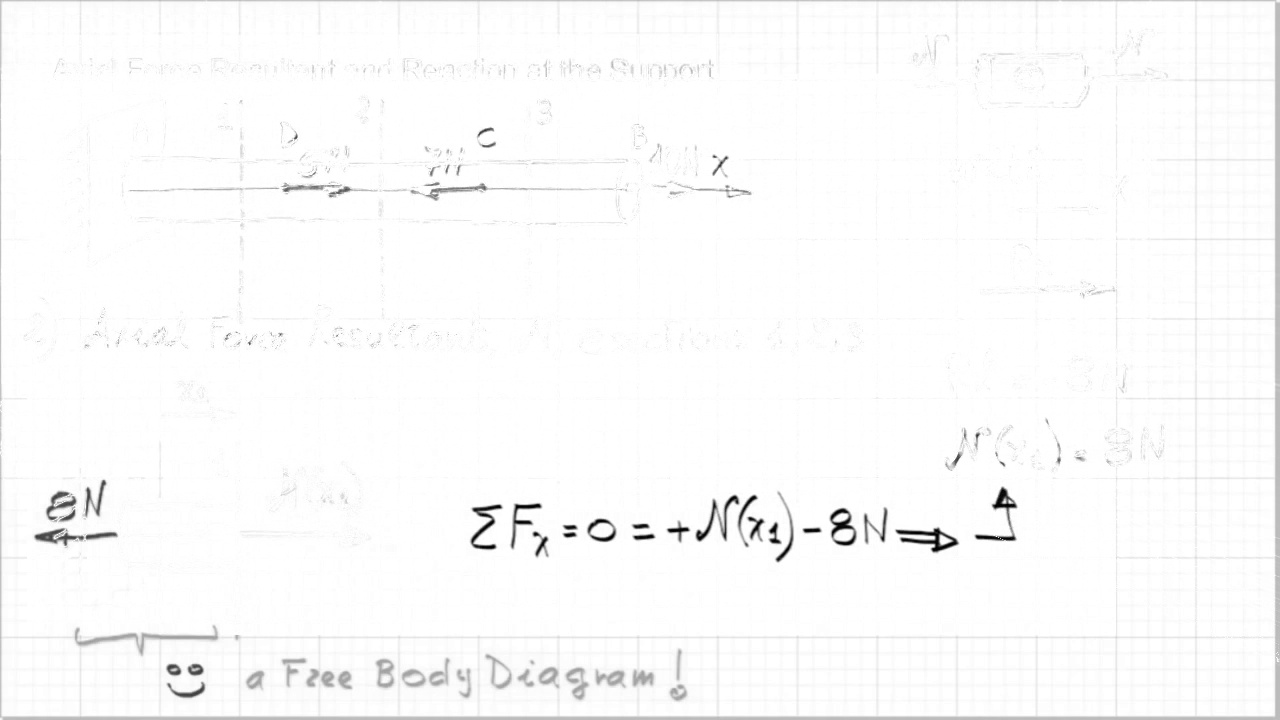 Axial Force Resultant and Reaction at the Support
N N
A 1 D 2 C 3 B
5N 7N 10N x
2) Axial Force Resultant, N, @ sections 1, 2, 3
x1
8N
N(x1) = 8N
8N N(x1)
ΣFx = 0 = +N(x1) - 8N ⇒
a Free Body Diagram!